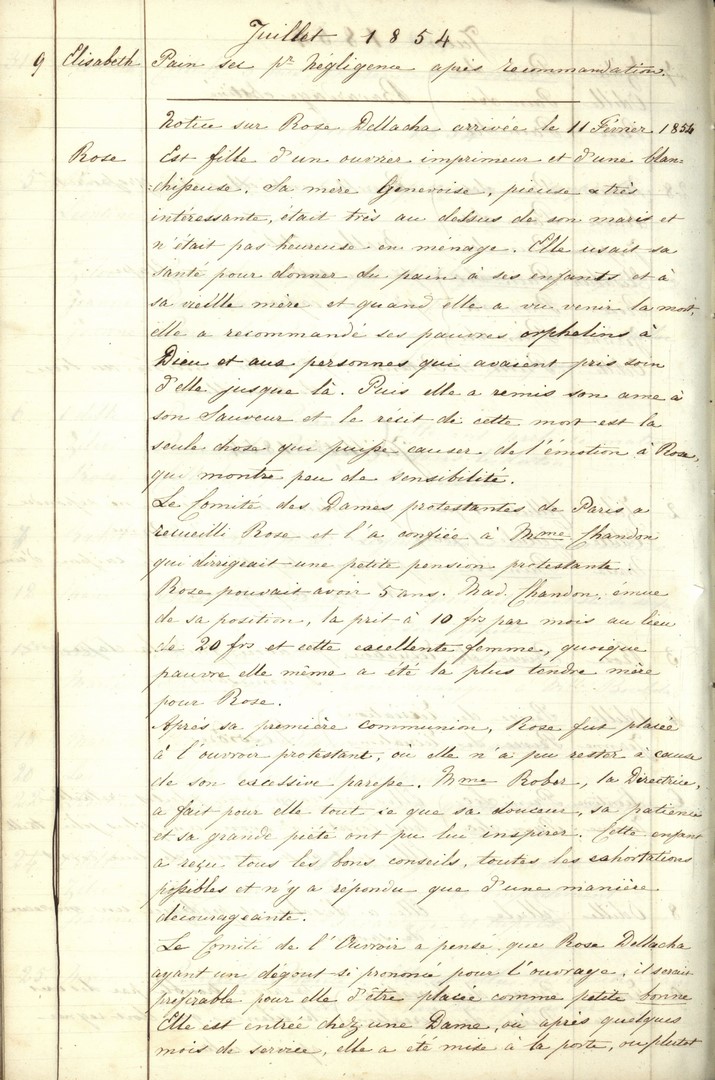 Juillet 1854
9 Elisabeth Pain sec pr négligence après recommandation.
Notice sur Rose Dellacha arrivée le 11 Février 1854
Rose Est fille d'un ouvrier imprimeur et d'une blan-
:chisseuse. Sa mère Genevoise, pieuse & très
intéressante, était très au dessus de son maris et
n'était pas heureuse en ménage. Elle usait sa
santé pour donner du pain à ses enfants et à
sa vieille mère et quand elle a vu venir la mort,
elle a recommandé ses pauvres orphelins à
Dieu et aux personnes qui avaient pris soin
d'elle jusque là. Puis elle a remis son ame à
son Sauveur et le récit de cette mort est la
seule chose qui puisse causer de l'émotion à Rose,
qui montre peu de sensibilité.
Le Comité des Dames protestantes de Paris a
recueilli Rose et l'a confiée à Mme Chandon
qui dirrigeait une petite pension protestante.
Rose pouvait avoir 5 ans. Mad. Chandon, émue
de sa position, la prit à 10 frs par mois au lieu
de 20 frs et cette excellente femme, quoique
pauvre elle même a été la plus tendre mère
pour Rose.
Après sa première communion, Rose fut placée
à l'ouvroir protestant, où elle n'a pu rester à cause
de son excessive paresse. Mme Rober, la Directrice,
a fait pour elle tout ce que sa douceur, sa patience
et sa grande piété ont pu lui inspirer. Cette enfant
a reçu tous les bons conseils, toutes les exhortations
possibles et n'y a répondu que d'une manière
décourageante.
Le Comité de l'Ouvroir a pensé que Rose Dellacha
ayant un dégout si prononcé pour l'ouvrage, il serait
préférable pour elle d'être placée comme petite bonne
Elle est entrée chez une Dame, où après quelques
mois de service, elle a été mise à la porte, ou plutot